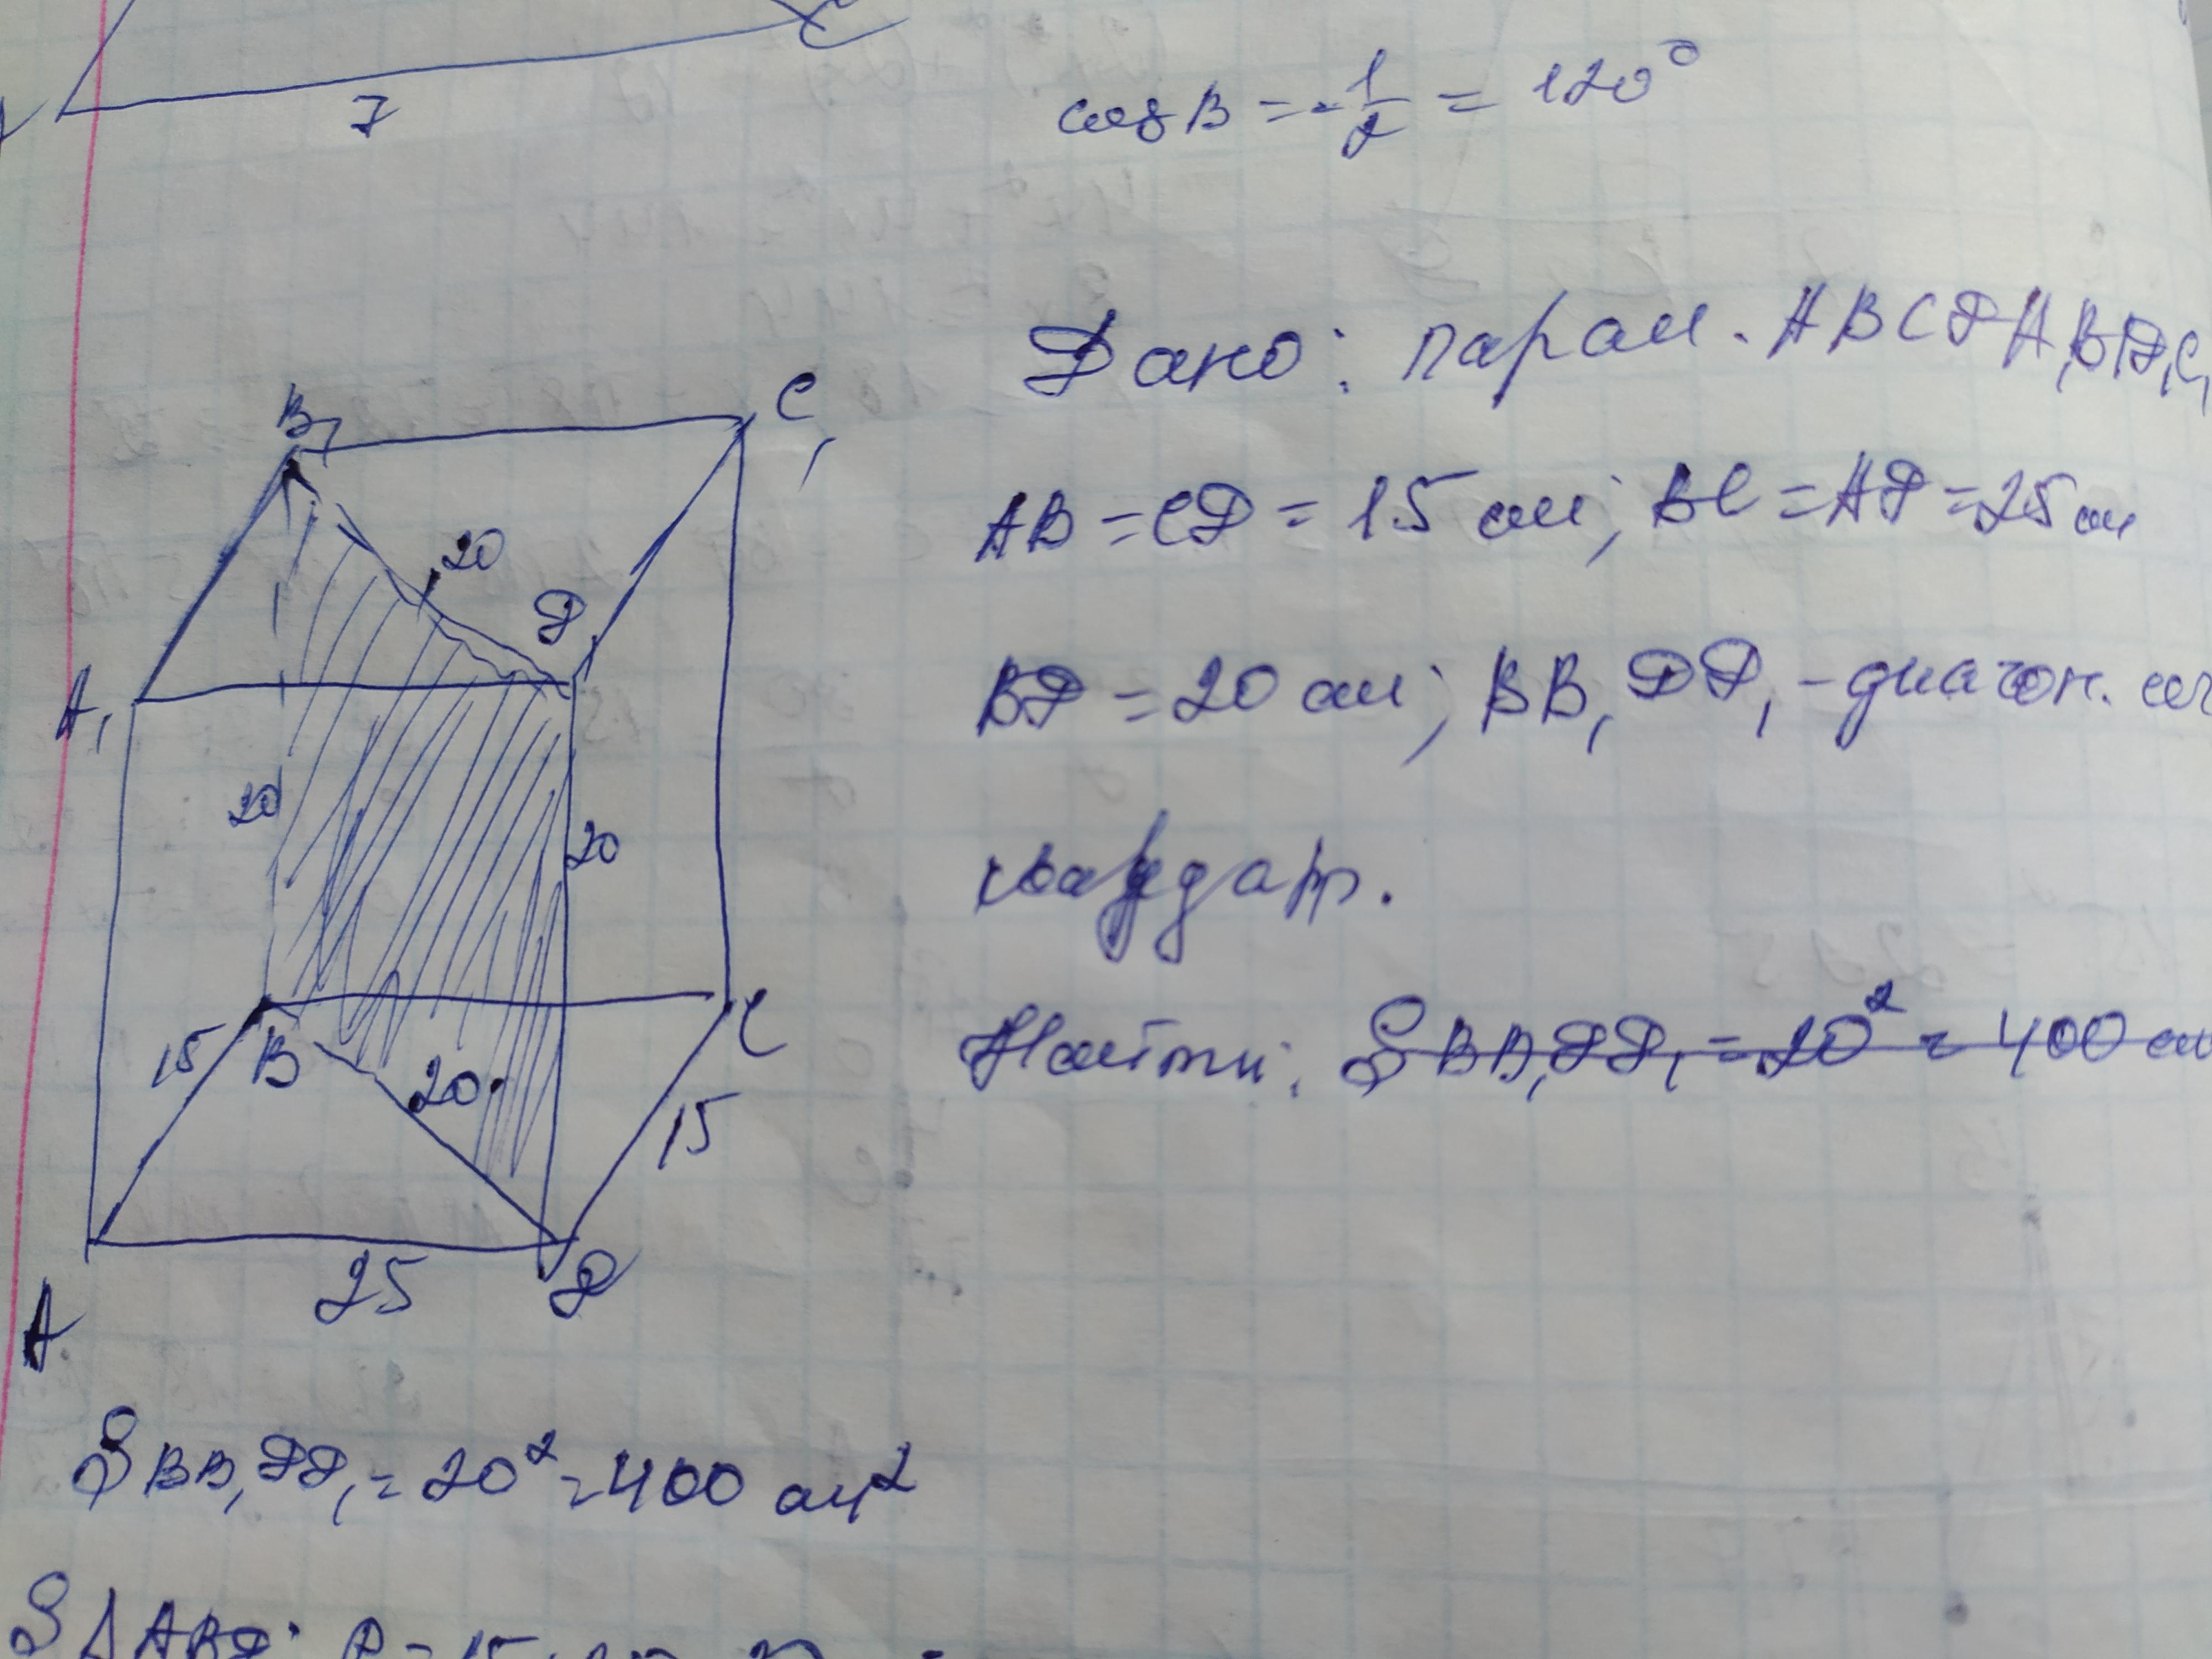 C
7
cos B = -1/2 = 120°
Дано: парал. ABCDA₁B₁D₁C₁
AB = CD = 15 см; BC = AD = 25 см
BD = 20 см; BB₁DD₁ - диагон. сеч
квадрат.
Найти: S BB₁DD₁ = 20² = 400 см
B₁
C₁
20
D₁
A₁
20
20
15
B
C
20
15
25
D
A
S BB₁DD₁ = 20² = 400 см²
S ΔABD: